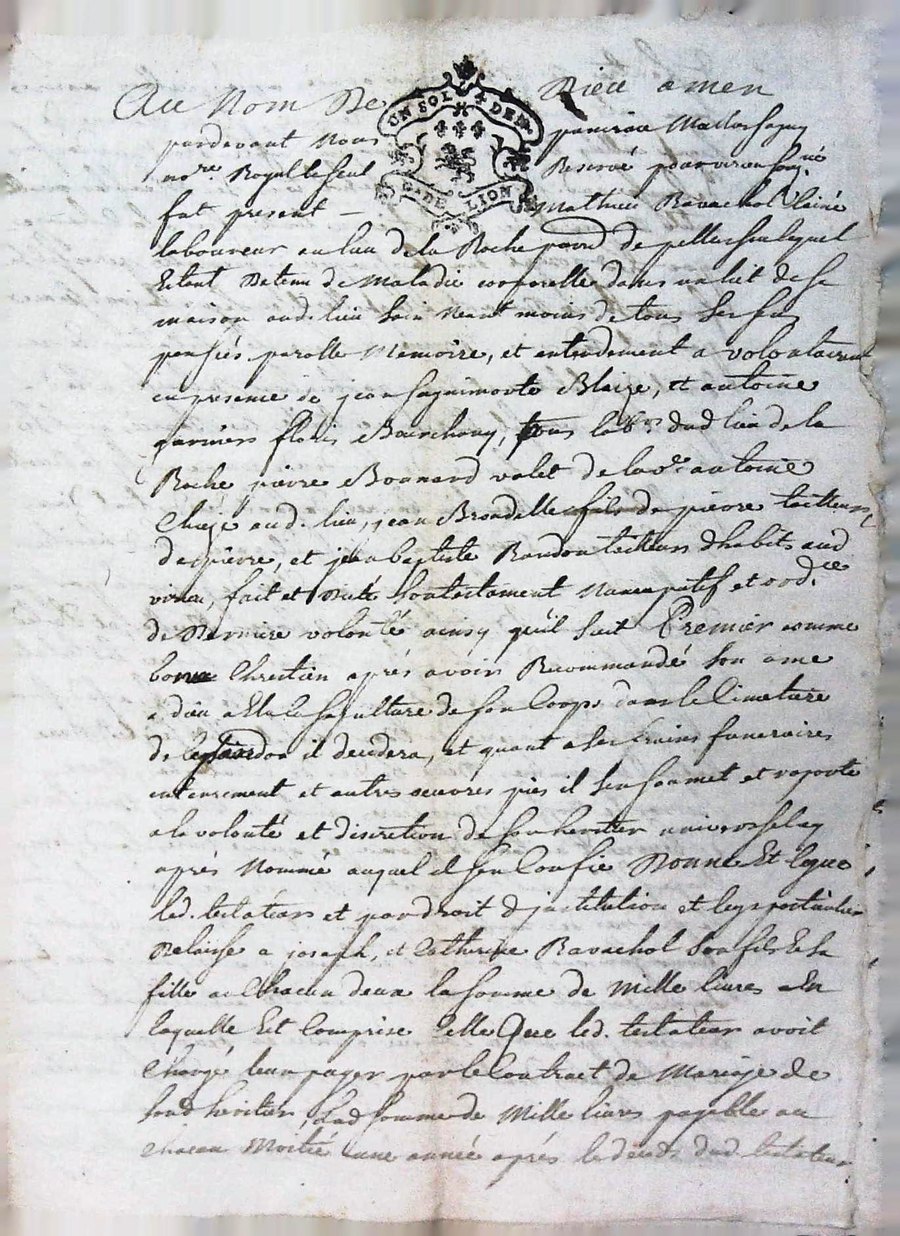 Au Nom De Dieu amen
UN SOL 4 DEN.
G. DE LION
pardevant Nous
no.re Royal
fut present — Mathieu Ravachol L'ainé
laboureur au lieu de la Roche parr. de
Etant Detenu de Maladie corporelle dans un lit de sa
maison aud. lieu sain Neant moins de tous ses sens
pensées parolle Memoire, et entendement a volontairement
en presence de jean Blaize, et antoine
garniers Bourchany, tous lab.rs dud. lieu de la
Roche pierre Bonnard valet de la v.e antoine
aud. lieu, jean Bradelle fils de pierre tailleurs
de pierre, et jean baptiste Randon tailleurs d'habits aud.
fait et Dicté son testament Nuncupatif et ord.ce
de Derniere volonté ainsy qu'il suit Premier comme
bon Chrestien aprés avoir Recommandé son ame
a dieu a Elu la sepulture de son Corps dans le Cimetiere
de il decedera, et quant a ses frains funeraires
enterrement et autres oeuvres pies il s'en soumet et raporte
a la volonté et discretion de son heritier universsel cy
aprés Nommé auquel il s'en Confie Donne Et legue
led. testateur et par droit d'jnstitution et legs particulier
Delaisse a joseph, et Catherine Ravachol son fils Et sa
fille a Chacun deux la somme de Mille livres En
laquelle Est Comprise Celle Que led. testateur avoit
Chargé leur payer par le Contract de Mariage de
sond. heritier, lad. somme de Mille livres payable a
Chacun Moitié une année aprés le decés dud. testateur